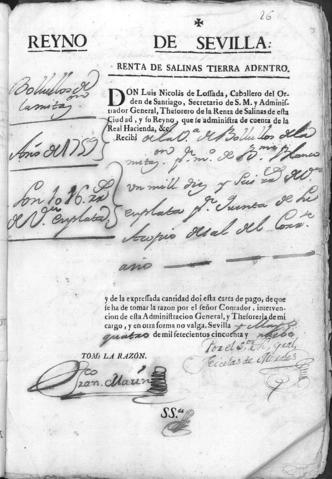 26
REYNO DE SEVILLA:
RENTA DE SALINAS TIERRA ADENTRO.
Bollullos de la
mitaz
Año de 1759
Son 1016 rs
de Vn en plata
DON Luis Nicolás de Lossada, Caballero del Or-
den de Santiago, Secretario de S. M. y Adminis-
trador General, Thesorero de la Renta de Salinas de esta
Ciudad, y su Reyno, que se administra de cuenta de la
Real Hacienda, &c.
Recibí de la Va. de Bollullos de la
mitaz pr. mo. de Dn. Blanco
un mill diez y seis rs de Vn
en plata pr. quenta de
Acopio de sal del Corrte
año
y de la expressada cantidad doi esta carta de pago, de que
se ha de tomar la razon por el señor Contador, interven-
cion de esta Administracion General, y Thesoreria de mi
cargo, y en otra forma no valga. Sevilla y Mayo
quatro de mil setecientos cincuenta y nuebe
TOMÉ LA RAZON.
Fran. Marin
Nicolas de Mendez
SS.